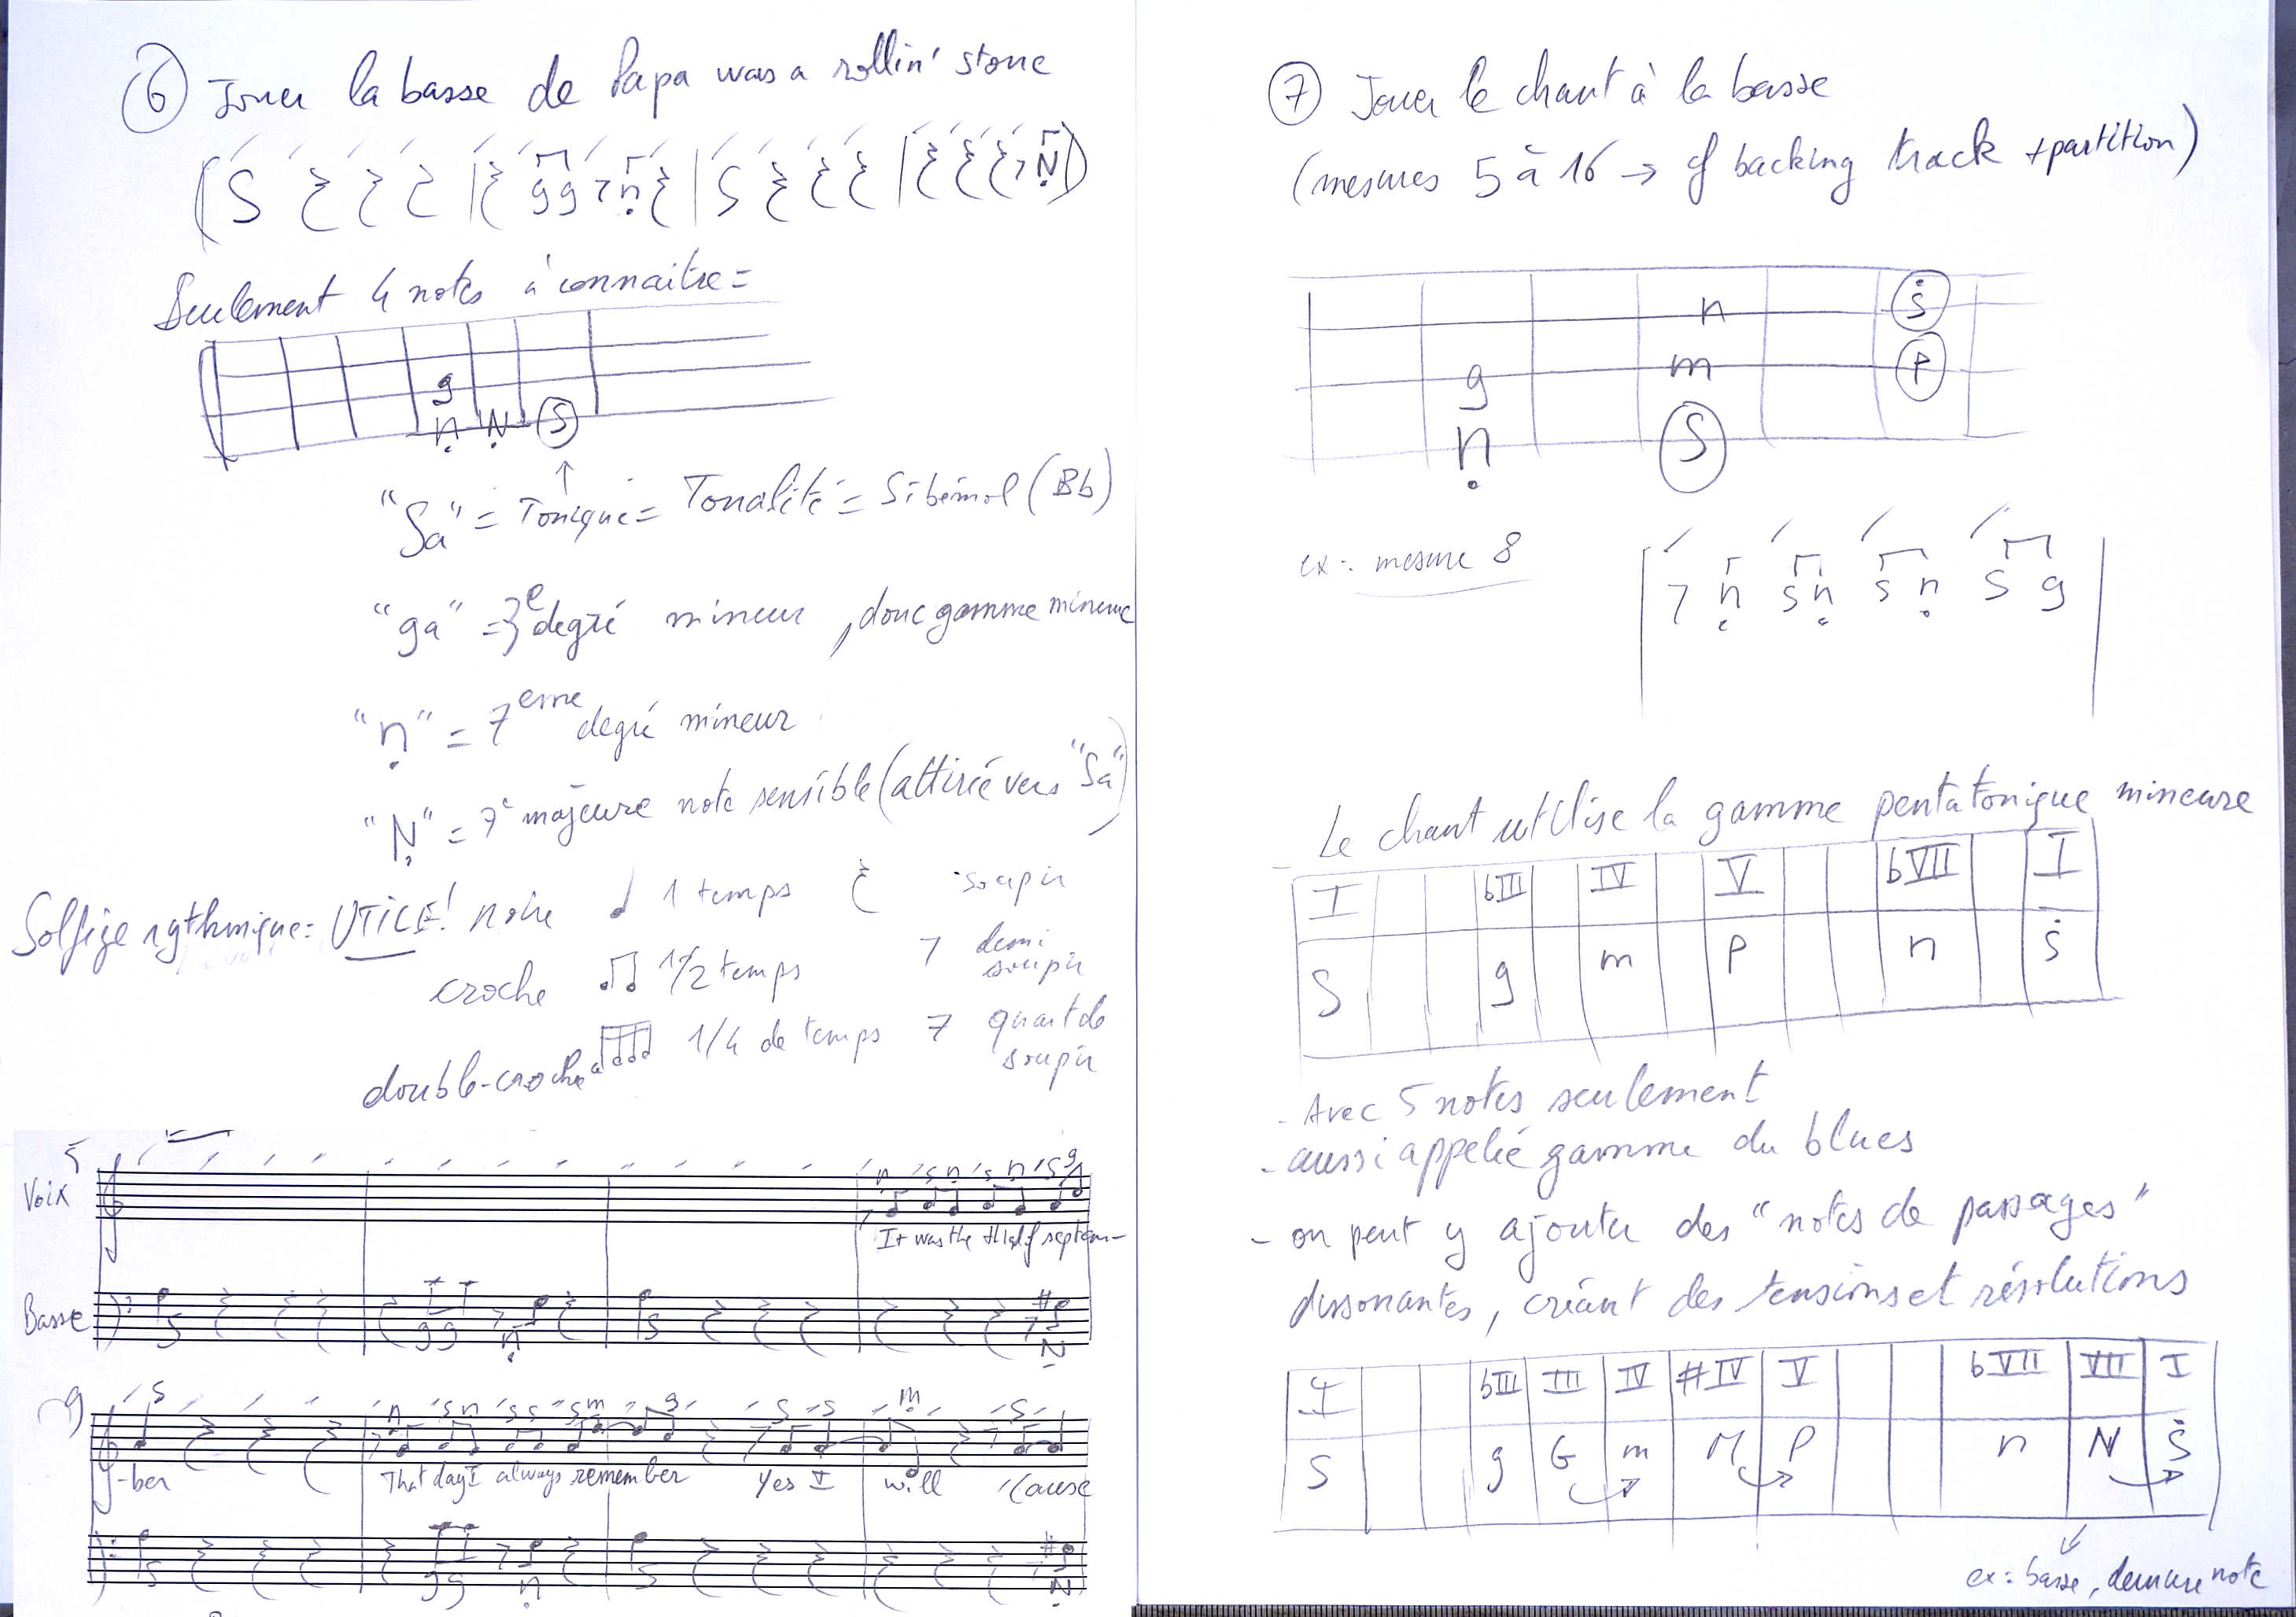 ⑥ Jouer la basse de Papa was a rollin' stone
(S | gg 7 ṇ | S | 7 Ṇ)
Seulement 4 notes à connaitre =
g
ṇ Ṇ S
↑
"Sa" = Tonique = Tonalité = Si bémol (Bb)
"ga" = 3e degré mineur, donc gamme mineure
"ṇ" = 7eme degré mineur
"Ṇ" = 7e majeure note sensible (attirée vers "Sa")
Solfège rythmique = UTILE! noire 1 temps soupir
croche 1/2 temps 7 demi soupir
double-croche 1/4 de temps 7 quart de soupir
5
Voix
n s n s n s g
It was the third of septem-
Basse
S gg ṇ S Ṇ
9
s n s n s s s m g s s m s
-ber That day I always remember Yes I will 'Cause
S gg ṇ S Ṇ
⑦ Jouer le chant à la basse
(mesures 5 à 16 → cf backing track + partition)
n ṡ
g m P
ṇ S
ex: mesure 8
7 ṇ s ṇ s ṇ s g
- Le chant utilise la gamme pentatonique mineure
I bIII IV V bVII I
S g m P n ṡ
- Avec 5 notes seulement
- aussi appelée gamme du blues
- on peut y ajouter des "notes de passages"
dissonantes, créant des tensions et résolutions
I bIII III IV #IV V bVII VII I
S g G m M P n N Ṡ
ex: basse, dernière note